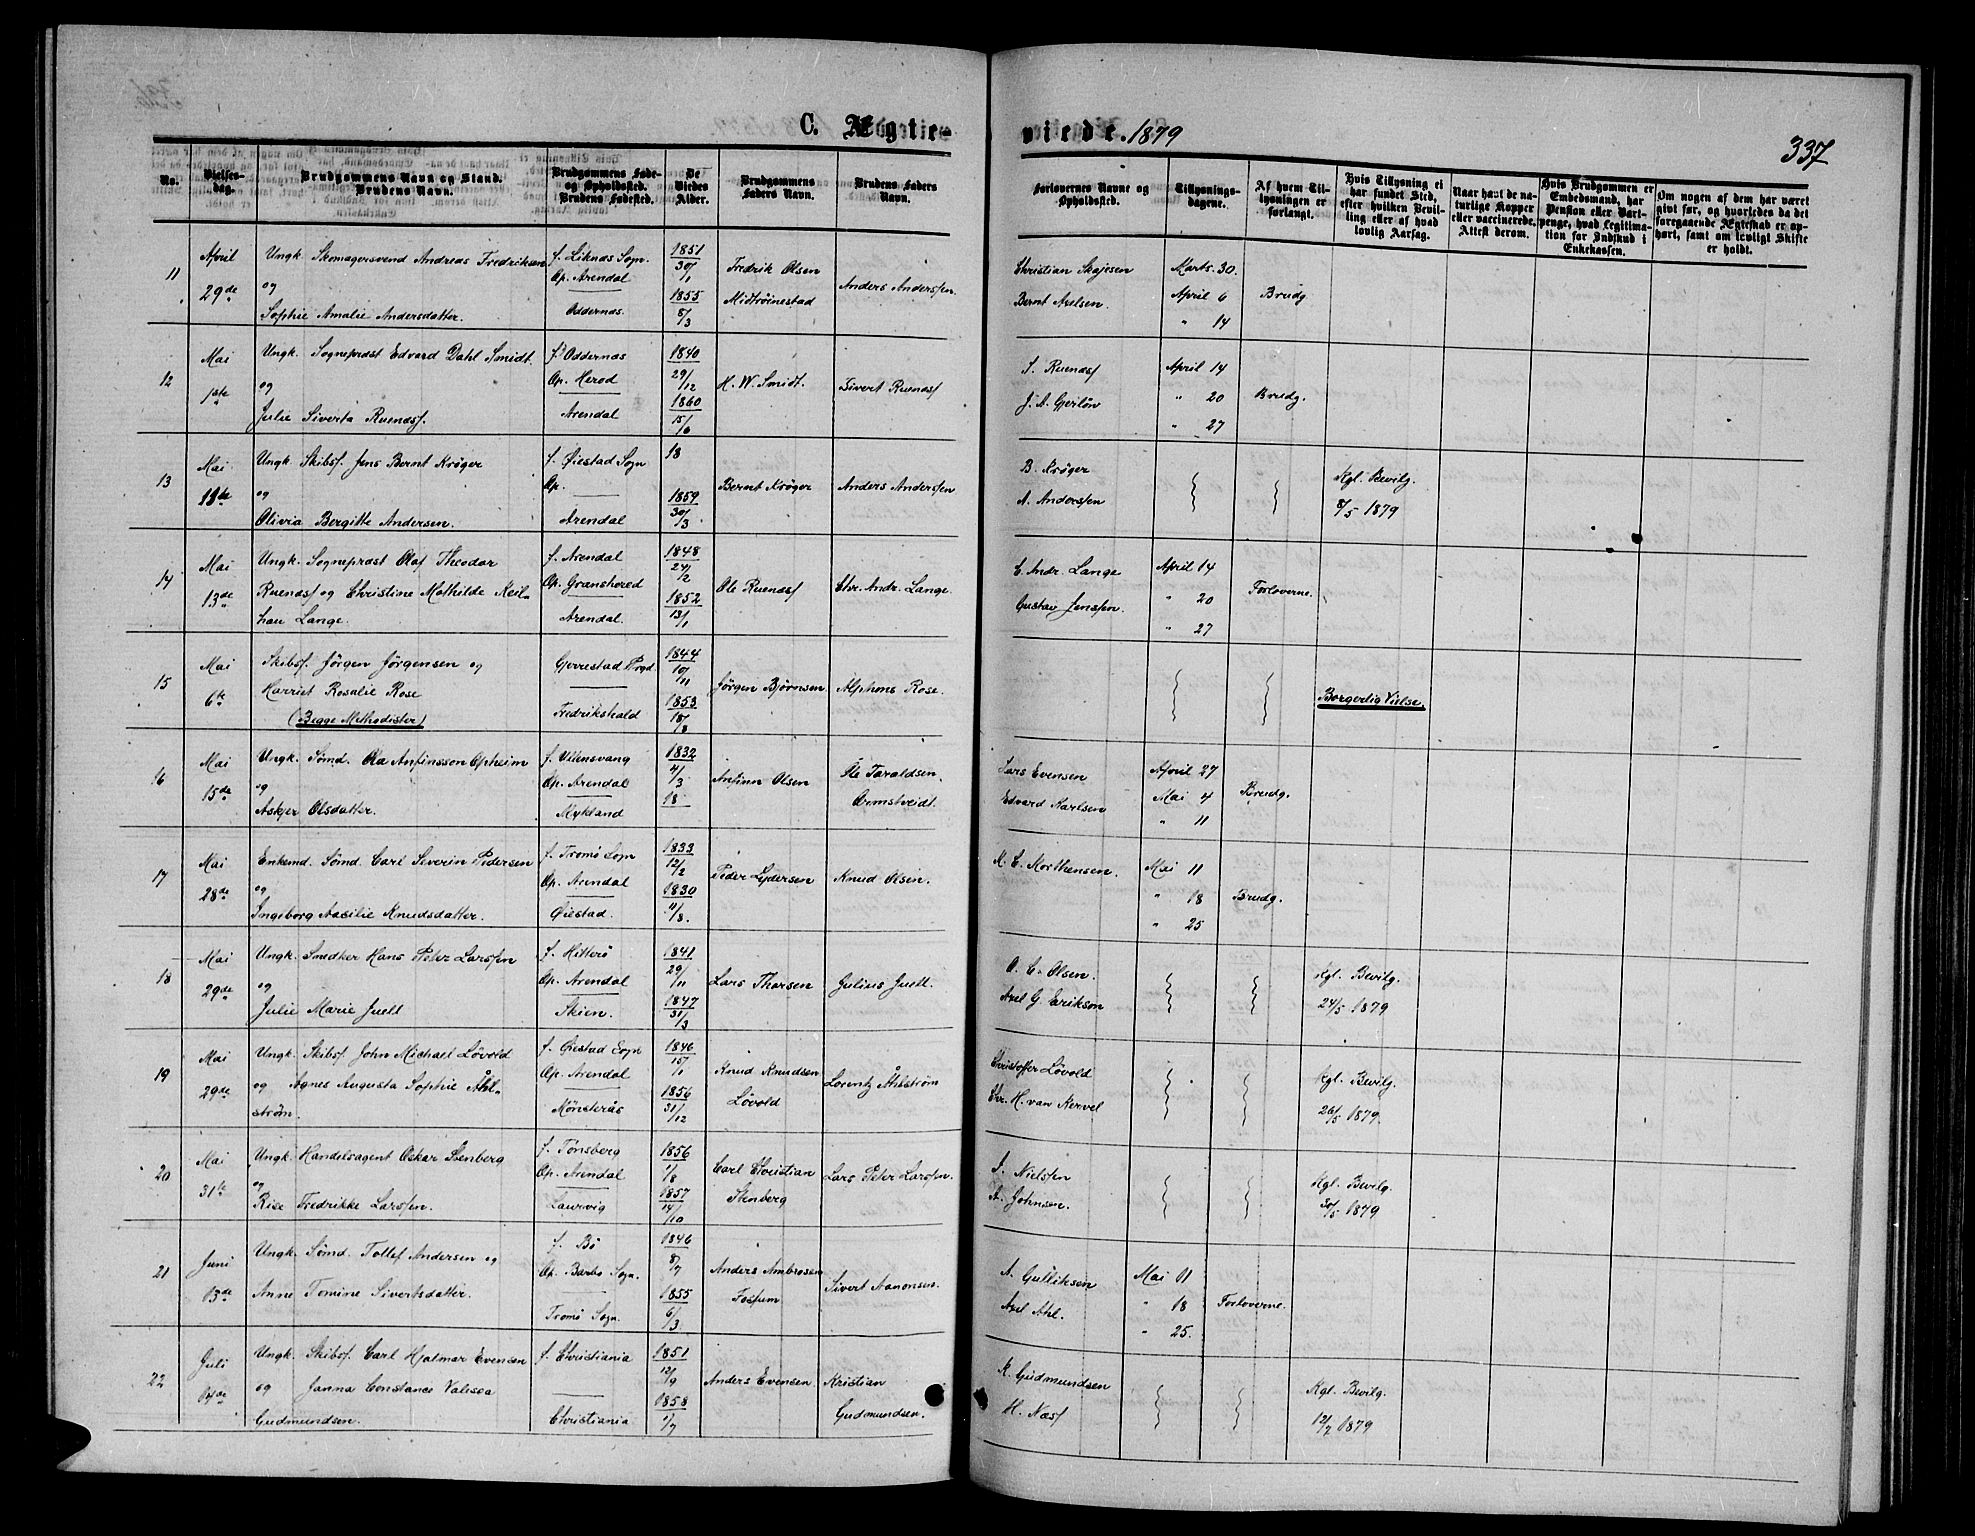 C. Ægtie-
viede. 1879
337
No.
Vielses-
dag.
Brudgommens Navn og Stand.
Brudens Navn.
Brudgommens Føde-
og Opholdssted.
Brudens Fødested.
De
Viedes
Alder.
Brudgommens
Faders Navn.
Brudens Faders
Navn.
Forlovernes Navne og
Opholdssted.
Tillysnings-
dagene.
Af hvem Til-
lysningen er
forlangt.
Hvis Tillysning ei
har fundet Sted,
efter hvilken Bevil-
ling eller af hvad
lovlig Aarsag.
Naar havt de na-
turlige Kopper
eller vaccinerede.
Attest derom.
Hvis Brudgommen er
Embedsmand, har
Pension eller Vart-
penge, hvad Legitima-
tion for Indskud i
Enkekassen.
Om nogen af dem har været
givt før, og hvorledes da det
foregaaende Ægteskab er op-
hørt, samt om lovligt Skifte
er holdt.
11
April
29de
Ungk. Skomagersvend Andreas Fredriksen
og
Sophie Amalie Andersdatter.
f. Liknæs Sogn.
Op. Arendal
Oddernæs.
1851
30/1
1855
8/3
Fredrik Olsen
Midtröinestad
Anders Anderssen.
Christian Skajesen
Bernt Axelsen.
Marts. 30.
April 6
" 14
Brudg
12
Mai
1ste
Ungk. Sogneprest Edvard Dahl Smidt.
og
Julie Siverta Ruenæss.
f. Oddernæs
Op. Herod
Arendal
1840
29/12
1860
15/6
H. W. Smidt.
Sivert Ruenæss
S. Ruenæss
J. A. Gjerlöv
April 14
" 20
" 27
Brudg.
13
Mai
13de
Ungk. Skibsf. Jens Bernt Kröger
og
Olivia Bergitte Andersen.
f. Øiestad Sogn
Op.
Arendal
18
1859
30/3
Bernt Kröger
Anders Anderssen
B. Kröger
A. Anderssen
Kgl. Bevilg.
8/5 1879
14
Mai
13de
Ungk. Sogneprest Olaf Theodor
Ruenæss og Christine Mathilde Keil-
hau Lange.
f. Arendal
Op. Gransherred
Arendal.
1848
24/2
1852
13/1
Ole Ruenæss
Chr. Andr. Lange.
C. Andr. Lange
Gustav Jenssen.
April 14
" 20
" 27
Forloverne.
15
Mai
6te
Skibsf. Jörgen Jörgensen og
Harriet Rosalie Rose
(Begge Methodister)
Gjerestad Prgd.
Fredrikshald
1844
10/11
1853
18/8
Jörgen Bjørnsen
Alphons Rose.
Borgerlig Vielse.
16
Mai
15de
Ungk. Sömd. Ola Anfinsson Opheim
og
Askjer Olsdatter.
f. Ullensvang
Op. Arendal
Mykland
1832
4/3
18
Anfinn Olsen
Ole Taraldsen.
Ormstveidt.
Lars Evensen
Edvard Karlsen
April 27
Mai 4
" 11
Brudg.
17
Mai
28de
Enkemd. Sömd. Carl Severin Pedersen
og
Ingeborg Aasilie Knudsdatter.
f. Tromö Sogn
Op. Arendal
Øiestad.
1833
12/2
1830
11/8.
Peder Lydersen
Knud Olsen.
M. C. Morthensen.
Mai 11
" 18
" 25
Brudg.
18
Mai
29de
Ungk. Snedker Hans Peter Larssen
og
Julie Marie Juell
f. Hitterö
Op. Arendal
Skien.
1841
29/11
1847
31/3
Lars Thorsen
Gulius Juell.
O. C. Olsen.
Axel G. Erikson
Kgl. Bevilg.
24/5 1879
19
Mai
29de
Ungk. Skibsf. John Michael Lövold
og Agnes Augusta Sophie Åhl-
ström.
f. Øiestad Sogn
Op. Arendal
Mönsterås
1846
15/1
1856
31/12
Knud Knudsen
Lövold
Lorentz Åhlström
Christoffer Lövold
Chr. H. van Kervel
Kgl. Bevilg.
26/5 1879.
20
Mai
31te
Ungk. Handelsagent Oskar Stenberg
og
Rise Fredrikke Larssen.
f. Tönsberg
Op. Arendal
Laurvig
1856
1/8
1857
14/10
Carl Christian
Stenberg
Lars Peter Larssen.
S. Nielssen
A. Johnsen.
Kgl. Bevilg.
30/5 1879
21
Juni
13de
Ungk. Sömd. Tollef Andersen og
Anne Tomine Sivertsdatter.
f. Bö
Op. Barbo Sogn.
Tromö Sogn.
1846
8/7
1855
6/3
Anders Ambrosen
Fossum
Sivert Aanonsen.
A. Gulliksen
Axel Ahl.
Mai 11
" 18
" 25.
Forloverne.
22
Juli
14de
Ungk. Skibsf. Carl Hjalmar Evensen
og Janna Constance Valisea
Gudmundsen.
f. Christiania
Christiania
1851
12/9
1858
1/7
Anders Evensen
Kristian
Gudmundsen.
K. Gudmundsen
H. Næss
Kgl. Bevilg.
12/7 1879